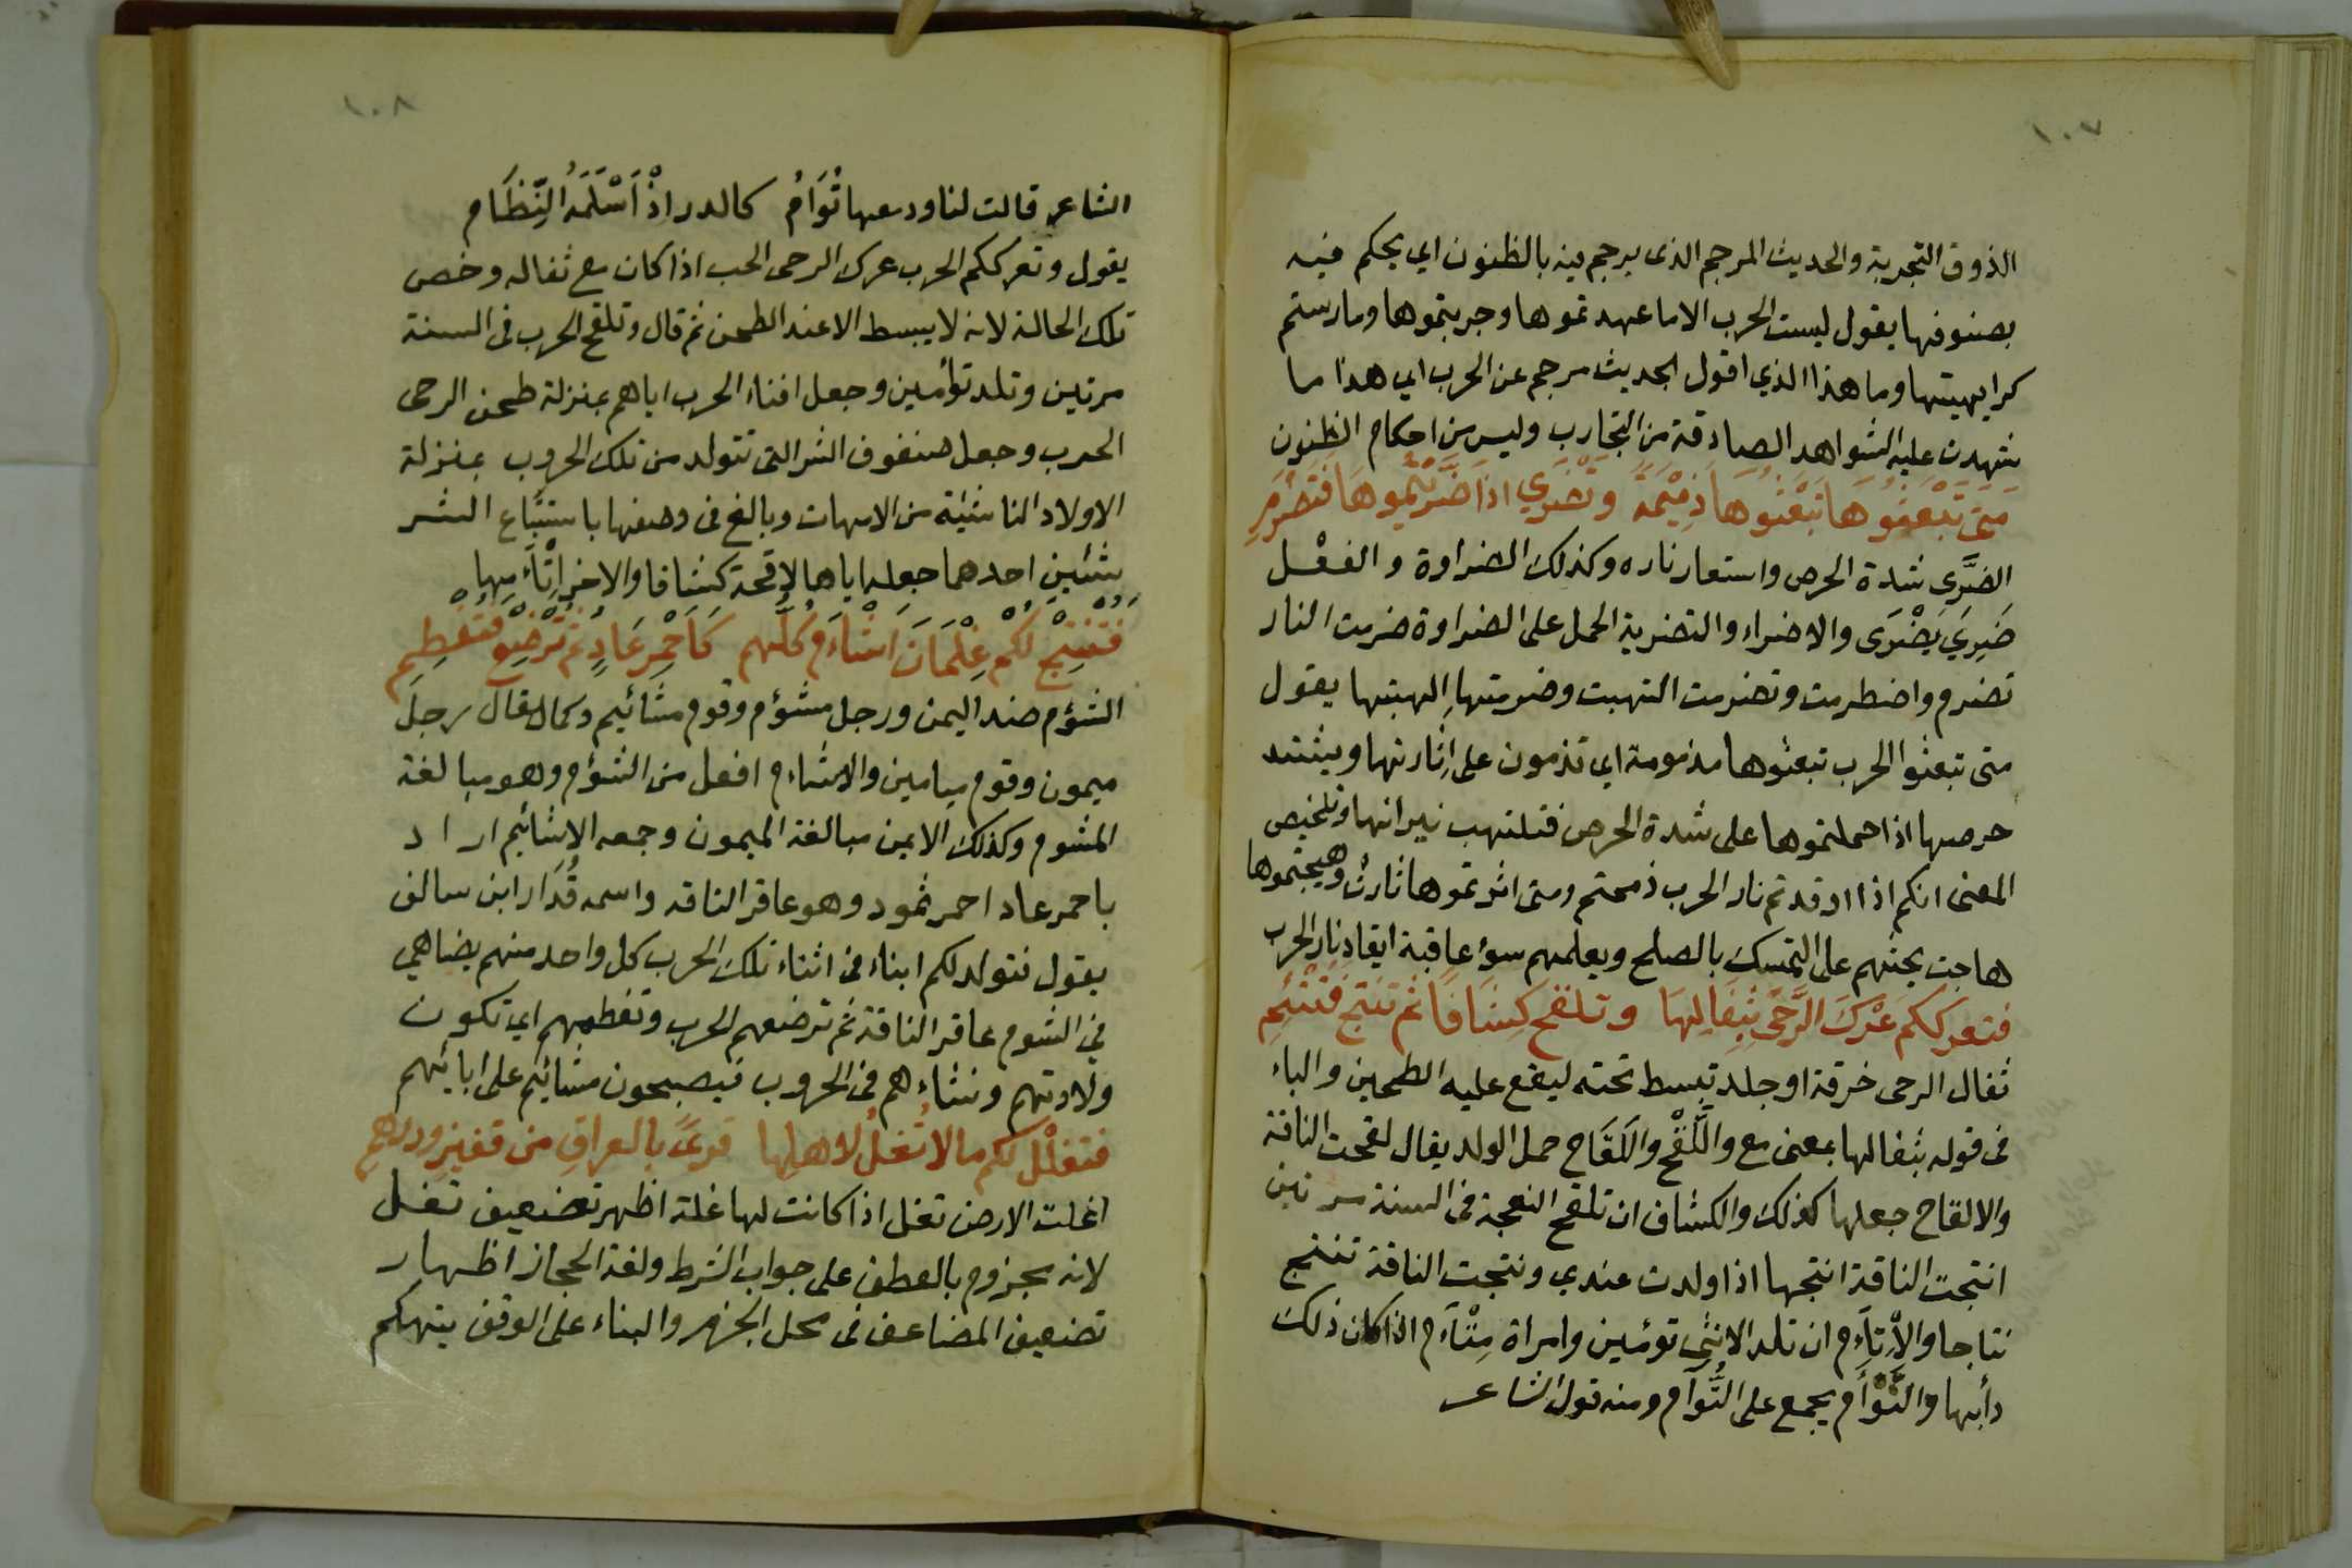 ١٠٧
الذوق التجربة والحديث المرجم الذى يرجم فيه بالظنون اي يحكم فيه
بصنوفها يقول ليست الحرب الا ما عهدتموها وجربتموها ومارستم
كرايهيتها وما هذا الذي اقول بحديث مرجم عن الحرب اي هذا ما
شهدت عليه الشواهد الصادقة من التجارب وليس من احكام الظنون
مَتَى تَبْعَثُوهَا تَبْعَثُوهَا ذَمِيْمَةً وتَضْرَي اذا ضَرَّيْتُمُوهَا فَتَضْرَمِ
الضَّرَى شدة الحرص واستعار ناره وكذلك الضراوة والفعْل
ضَرِيَ يَضْرَى والاضراء والتضرية الحمل على الضراوة ضرمت النار
تضرم واضطرمت وتضرمت التهبت وضرمتها الهبتها يقول
متى تبعثوا الحرب تبعثوها مذمومة اي تذمون على اِثارتها ويشتد
حرصها اذا حملتموها على شدة الحرص فتلتهب نيرانها وتلخيص
المعنى انكم اذا اوقدتم نار الحرب ذممتم ومتى اثرتموها ثارث وهيجتموها
هاجت يحثهم على التمسك بالصلح ويعلمهم سوٴ عاقبة ايقاد نار الحرب
فتعرككم عَرْكَ الرَّحَى بِثِفَالِهَا وتلقح كِشَافًا ثم تنتج فَتُتْئِمِ
ثفال الرحى خرقة او جلد تبسط تحته ليقع عليه الطحين والباء
فى قوله بثفالها بمعنى مع واللَّقْح واللَقَاح حمل الولد يقال لقحت الناقة
والالقاح جعلها كذلك والكشاف ان تلقح النعجة فى السنة مرتين
انتجت الناقة انتجها اذا ولدت عندي ونتجت الناقة تنتج
نتاجا والاِتآءم ان تلد الانثى توئمين وامراة مِتْآءم اذا كان ذلك
دأبها والتَّوْأَم يجمع على التُّوآم ومنه قول الشاعر
١٠٨
الشاعر قالت لنا ودمعها تُوَامُ كالدر اذْ اَسْلَمَهُ النِّظَام
يقول وتعرككم الحرب عرك الرحى الحب اذا كان مع ثفاله وخص
تلك الحالة لانه لا يبسط الا عند الطحن ثم قال وتلقح الحرب فى السنة
مرتين وتلد توأمين وجعل افناء الحرب اياهم بمنزلة طحن الرحى
الحب وجعل صنفوف الشر التى تتولد من تلك الحروب بمنزلة
الاولاد الناشئة من الامهات وبالغ فى وصفها باستتباع الشر
بشئين احدهما جعله اياها لاقحة كشافا والاخر اتْآءمها
فَتُنْتِجْ لَكُم غِلْمَانَ اَشْأَمَ كُلّهم كَاَحْمَرِ عَادٍ ثُمَّ تُرْضِعْ فَتَفْطِمِ
الشؤم ضد اليمن ورجل مشؤم وقوم مشائيم وكما يقال رجل
ميمون وقوم ميامين والاشاءم افعل من الشؤم وهو مبالغة
المشوم وكذلك الايمن مبالغة الميمون وجمعه الاشائيم ار ا د
باحمر عاد احمر ثمود وهو عاقر الناقه واسمه قُدَار ابن سالف
يقول فتولد لكم ابناء فى اثناء تلك الحرب كل واحد منهم يضاهي
في الشوم عاقر الناقة ثم ترضعهم الحرب وتفطمهم اي تكون
ولادتهم ونشاءهم فى الحروب فيصبحون مشائيم على ابائهم
فتغلْل لكم ما لا تُغلُ لاهلِها قرىً بالعراقِ من قفيزٍ ودرهمِ
اغلت الارض تغل اذا كانت لها غلة اظهر تضعيف تغل
لانه مجزوم بالعطف على جواب الشرط ولغة الحجاز اظهار
تضعيف المضاعف فى محل الجزم والبناء على الوقف يتهكم